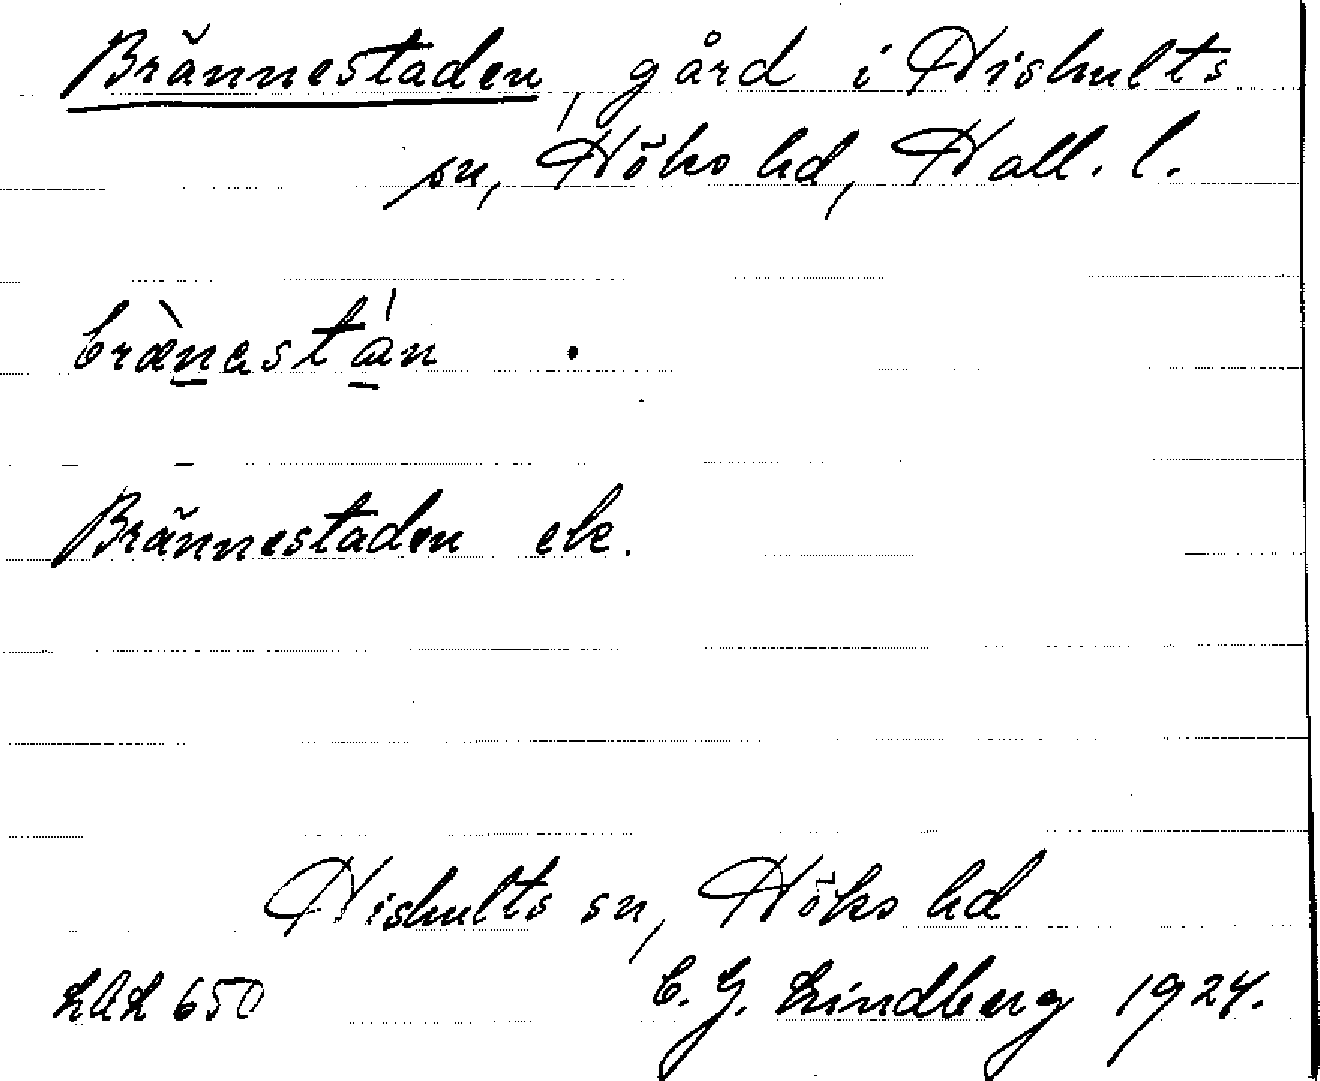 Brännestaden, gård i Hishults
sn, Höks hd, Hall. l.
bræ̀nəstán .
Brännestaden ek.
Hishults sn, Höks hd
LAL 650 C. G. Lindberg 1924.